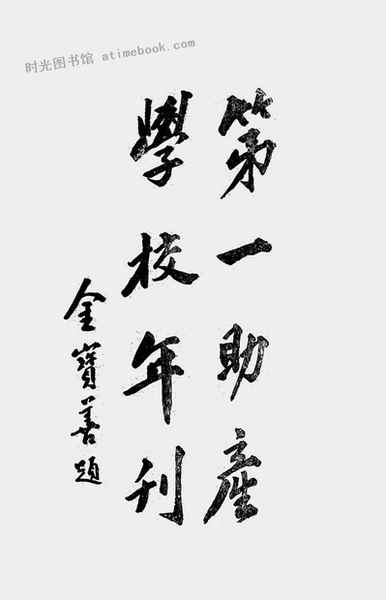 时光图书馆 atimebook.com
第一助產
學校年刊
金寶善題